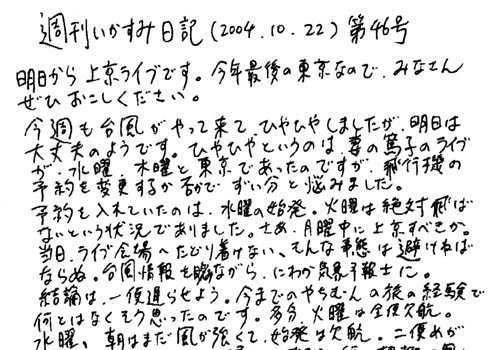 週刊いかすみ日記（2004.10.22）第46号
明日から上京ライブです。今年最後の東京なので、みなさん
ぜひおこしください。
今週も台風がやって来て、ひやひやしましたが、明日は
大丈夫のようです。ひやひやというのは、妻の篤子のライブ
が、水曜、木曜と東京であったのですが、飛行機の
予約を変更するか否かで ずい分と悩みました。
予約を入れていたのは、水曜の始発。火曜は絶対飛ば
ないという状況でありました。さあ、月曜中に上京すべきか。
当日、ライブ会場へたどり着けない。そんな事態は避けねば
ならぬ。台風情報を睨ながら、にわか気象予報士に。
結論は、一便遅らせよう。今までのやちむんの旅の経験で
何とはなくそう思ったのです。多分、火曜は全便欠航。
水曜、朝はまだ風が強くて、始発は欠航。二便めが